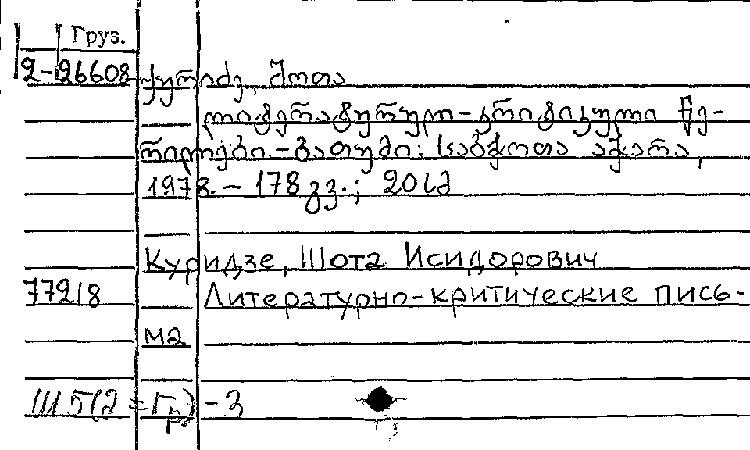 Груз.
2-26608 ქურიძე, შოთა
ლიტერატურულ-კრიტიკული წე-
რილები.-ბათუმი: საბჭოთა აჭარა,
1978.- 178 გვ.; 20სმ
Куридзе, Шота Исидорович
77218 Литературно-критические пись-
ма
Ш5(2=Гр)-3